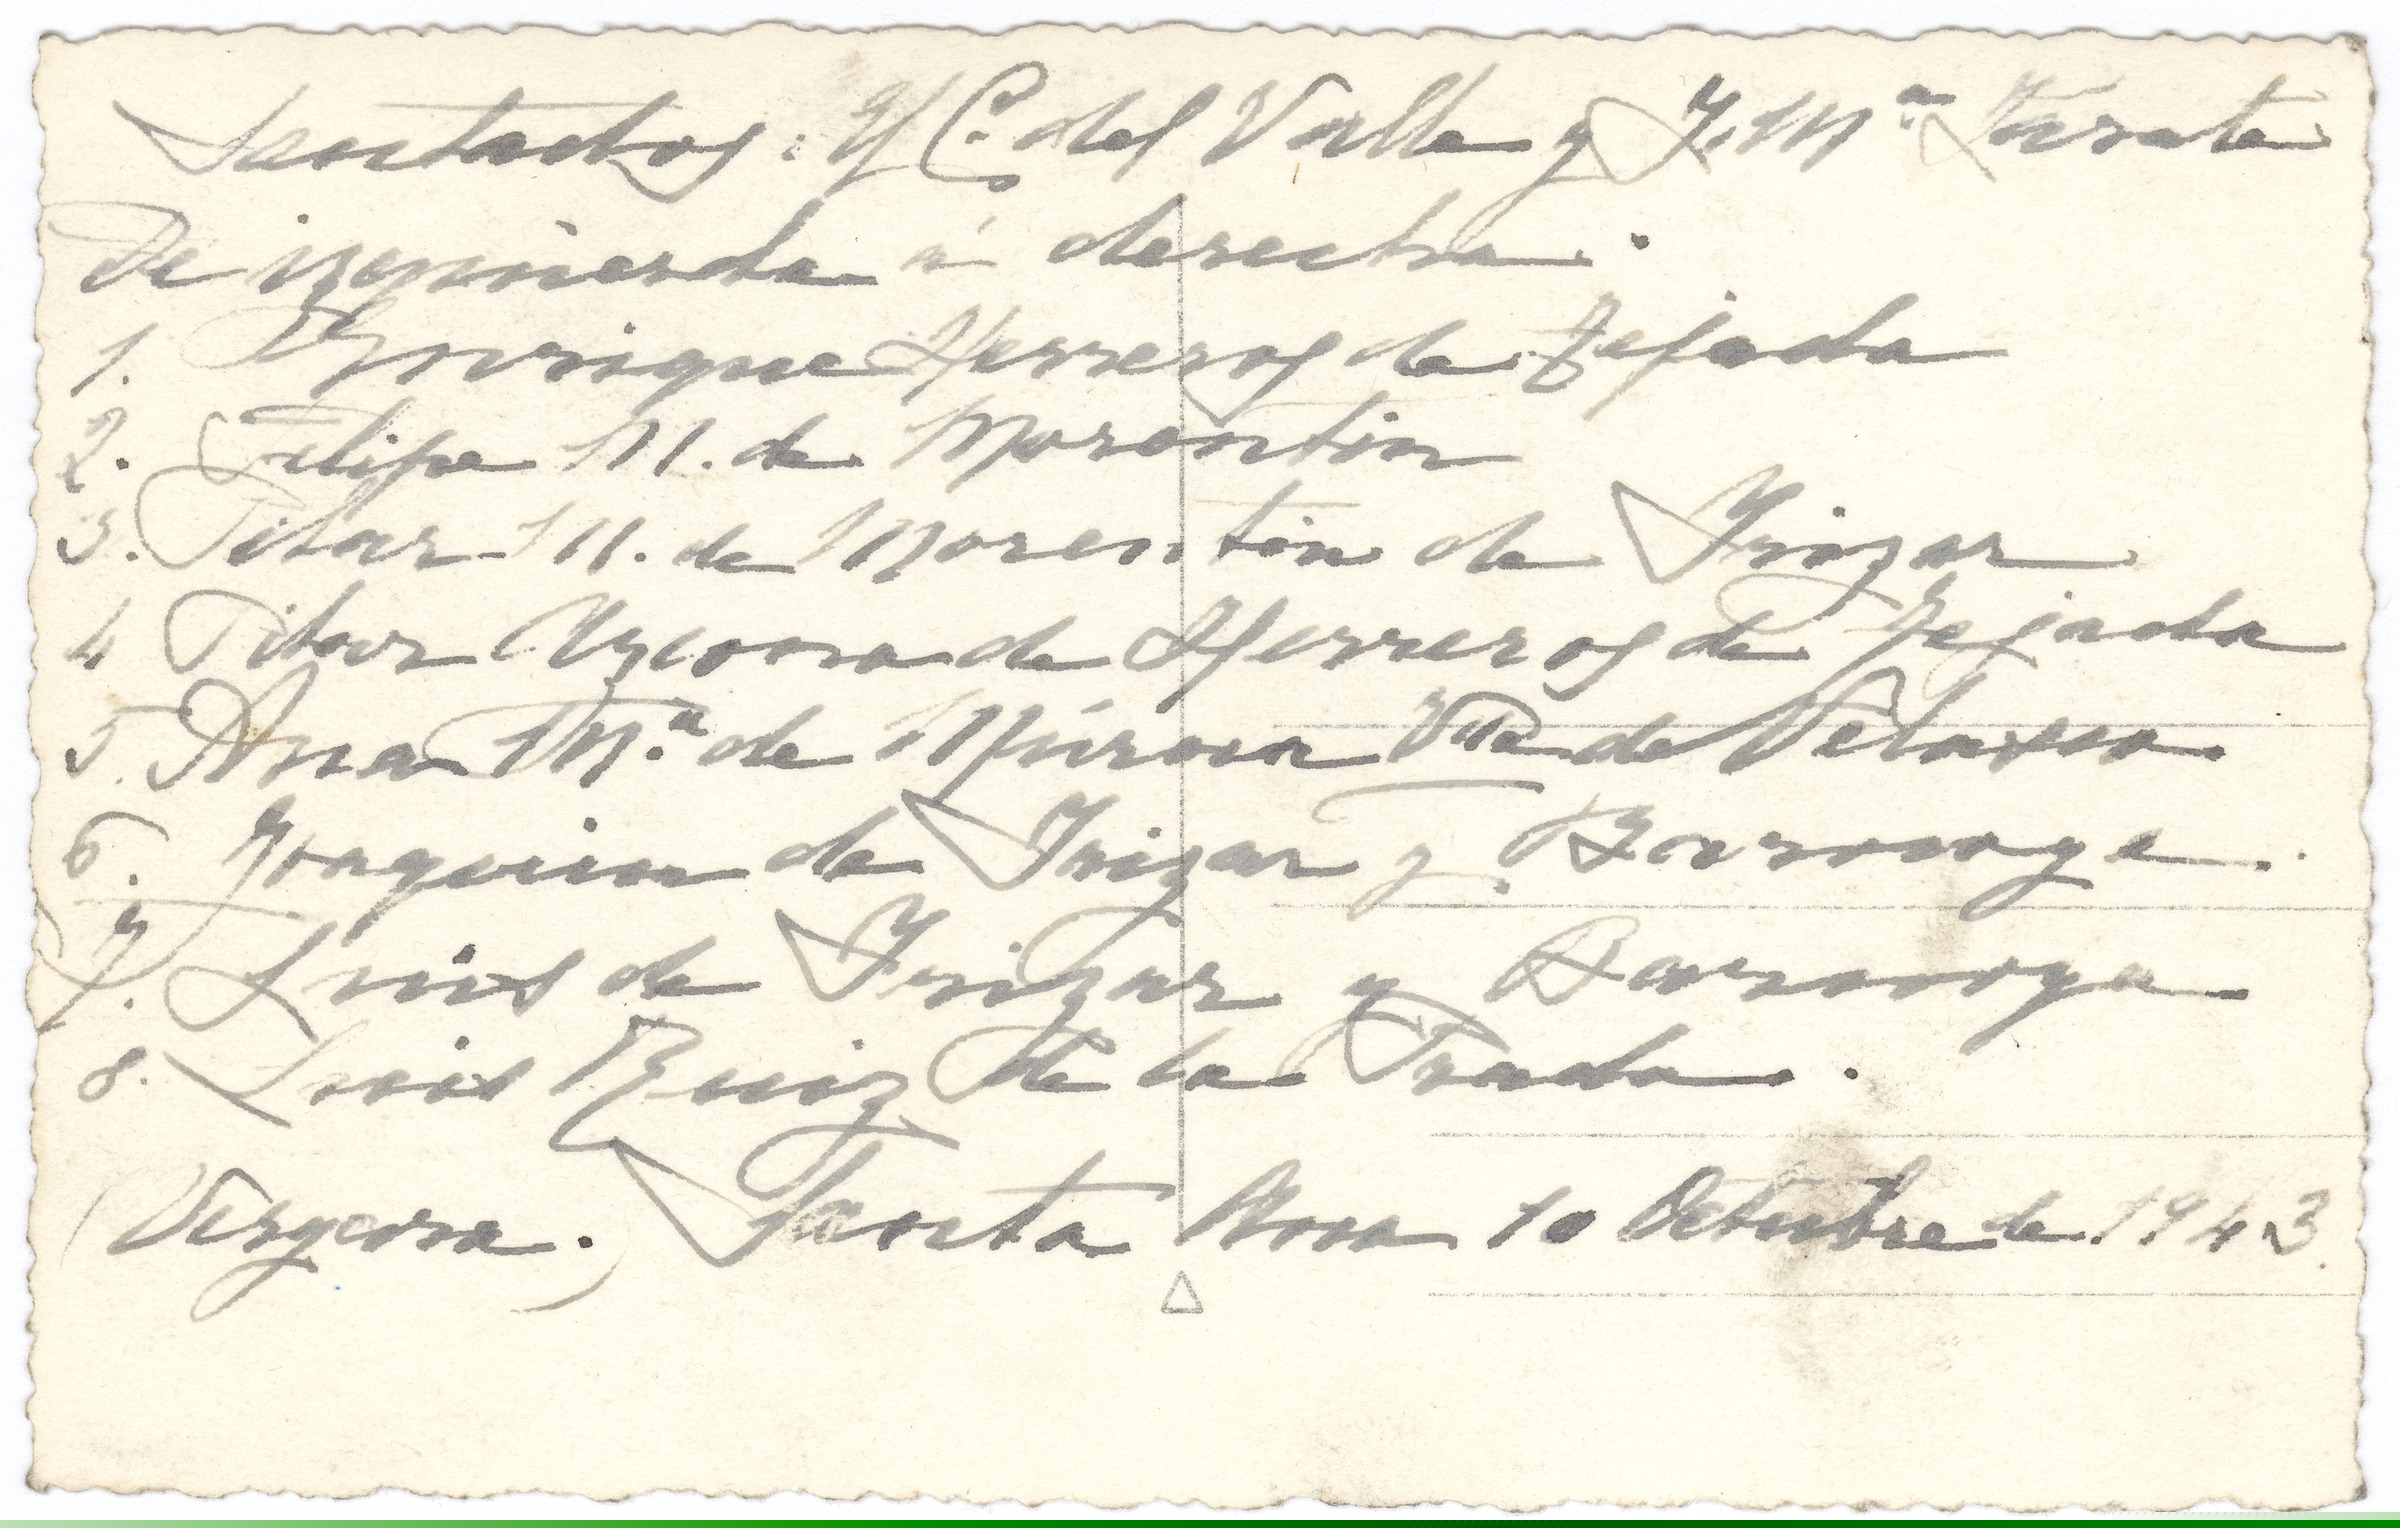 Sentados: Y C. del Valle y J. Mª Zarate
De izquierda a derecha.
1. Enrique Herreros de Tejada
2. Felipe M. de Morentin
3. Pilar M. de Morentin de Yrizar
4 Pilar Azcona de Herreros de Tejada
5. Ana Mª de Múrua Vda de Velasco.
6. Joaquin de Yrizar y Barnoya.
7. Luis de Yrizar y Barnoya
8. Luis Ruiz de la Prada.
(Vergara.) Santa Ana 10 Octubre de 1943.